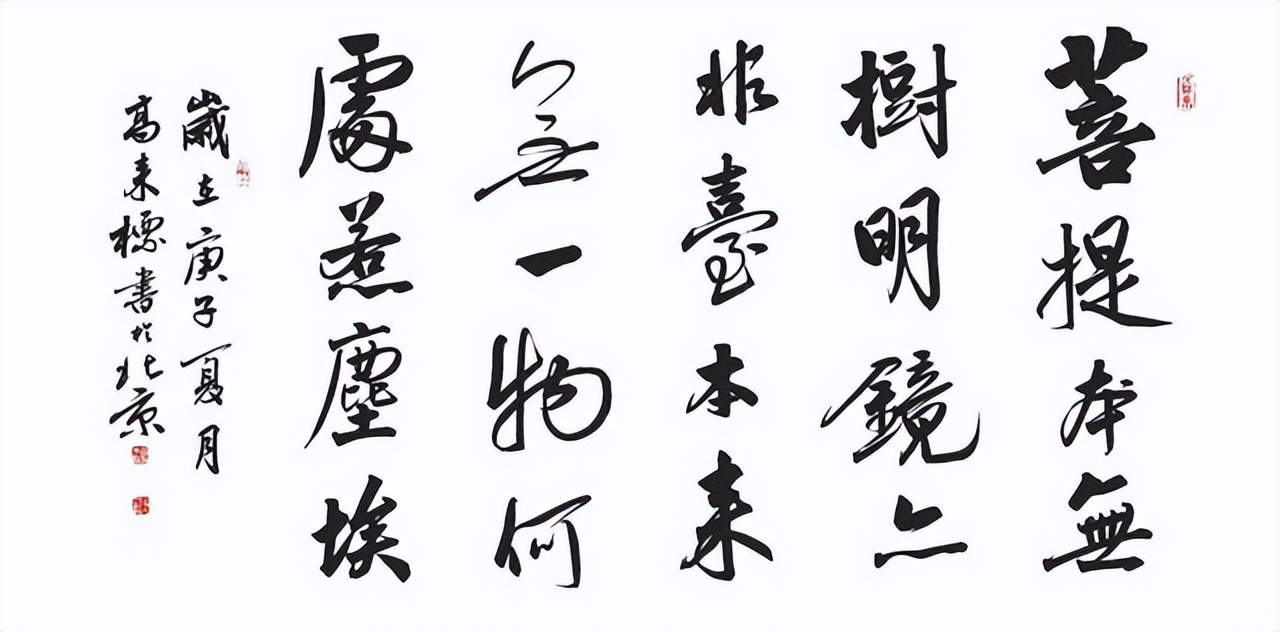 菩提本無
樹明鏡亦
非臺本來
無一物何
處惹塵埃
歲在庚子夏月
高來標書於北京